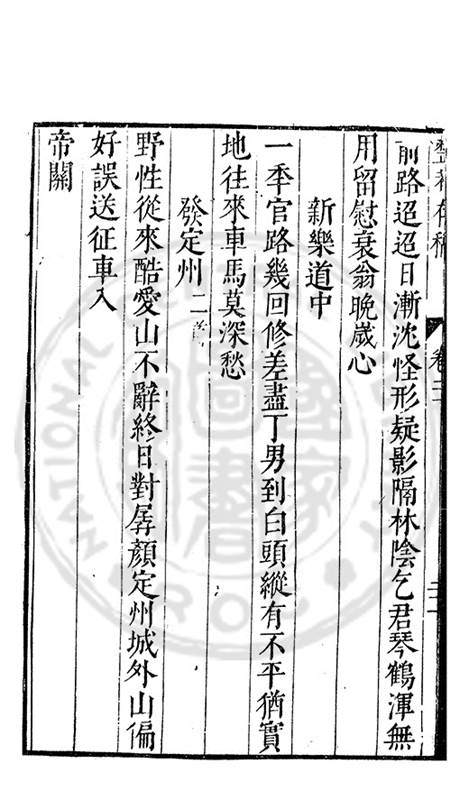 卷二
前路迢迢日漸沈怪形疑影隔林陰乞君琴鶴渾無
用留慰衰翁晚歲心
新樂道中
一季官路幾回修差盡丁男到白頭縱有不平猶實
地往來車馬莫深愁
發定州二首
野性從來酷愛山不辭終日對孱顏定州城外山偏
好誤送征車入
帝關